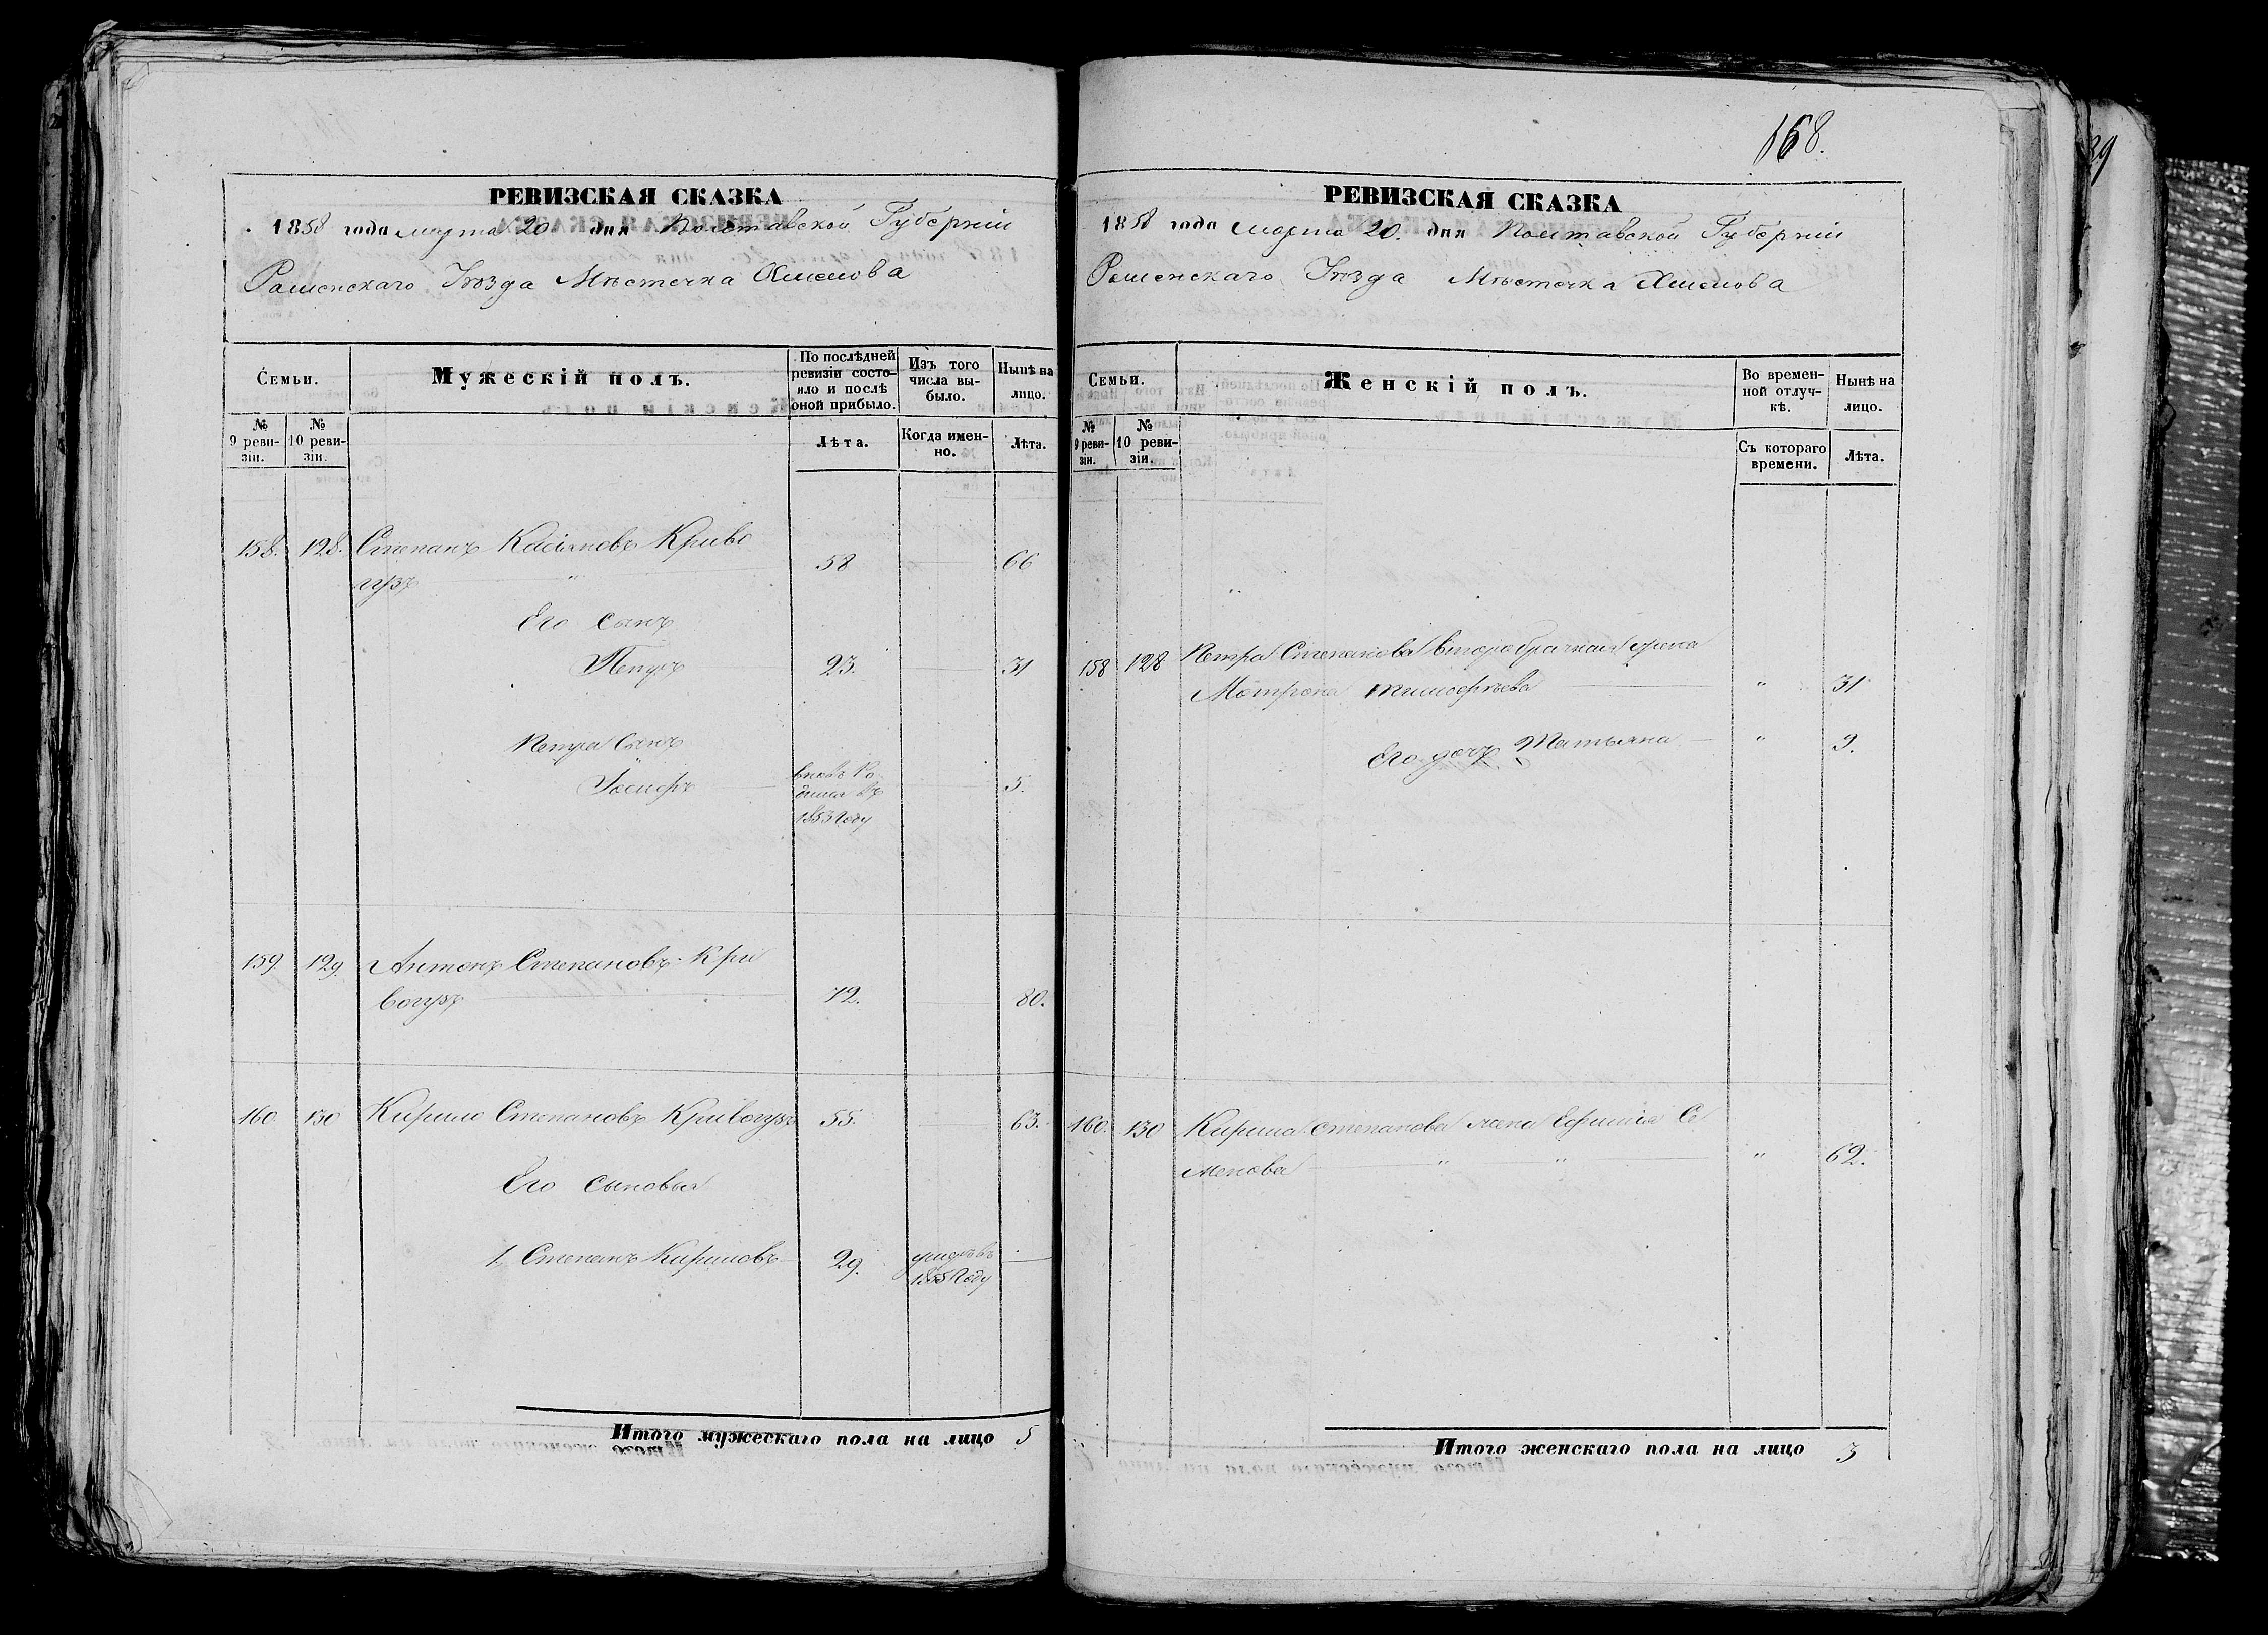 РЕВИЗСКАЯ СКАЗКА
1858 года марта 20 дня Полтавской Губерніи
Роменскаго Уѣзда Мѣстечка Хмелова
Семьи.
Мужескій полъ.
По послѣдней ревизіи состояло и послѣ оной прибыло.
Изъ того числа выбыло.
Нынѣ на лицо.
№ 9 ревизіи.
№ 10 ревизіи.
Лѣта.
Когда именно.
Лѣта.
158. 128. Степанъ Касіяновъ Криво
гузъ 58 66
Его сынъ
Петръ 23. 31
Петра Сынъ
Іосифъ вновь Ро 5.
дился въ
1853 Году
159. 129. Антонъ Степановъ Кри
вогузъ 72. 80.
160. 130 Кирило Степановъ Кривогузъ 55. 63.
Его сыновья
1. Степанъ Кириловъ 29. умеръ въ
1855 Году
Итого мужескаго пола на лицо 5
168.
РЕВИЗСКАЯ СКАЗКА
1858 года марта 20. дня Полтавской Губерніи
Роменскаго Уѣзда Мѣстечка Хмелова
Семьи.
Женскій полъ.
Во временной отлучкѣ.
Нынѣ на лицо.
№ 9 ревизіи.
№ 10 ревизіи.
Съ котораго времени.
Лѣта.
158 128 Петра Степанова второбрачная жена
Мотрона Тимофѣева " 31
Его дочь Татьяна " 9.
160. 130 Кирила Степанова жена Ефимія Се
менова " " " 62.
Итого женскаго пола на лицо 3